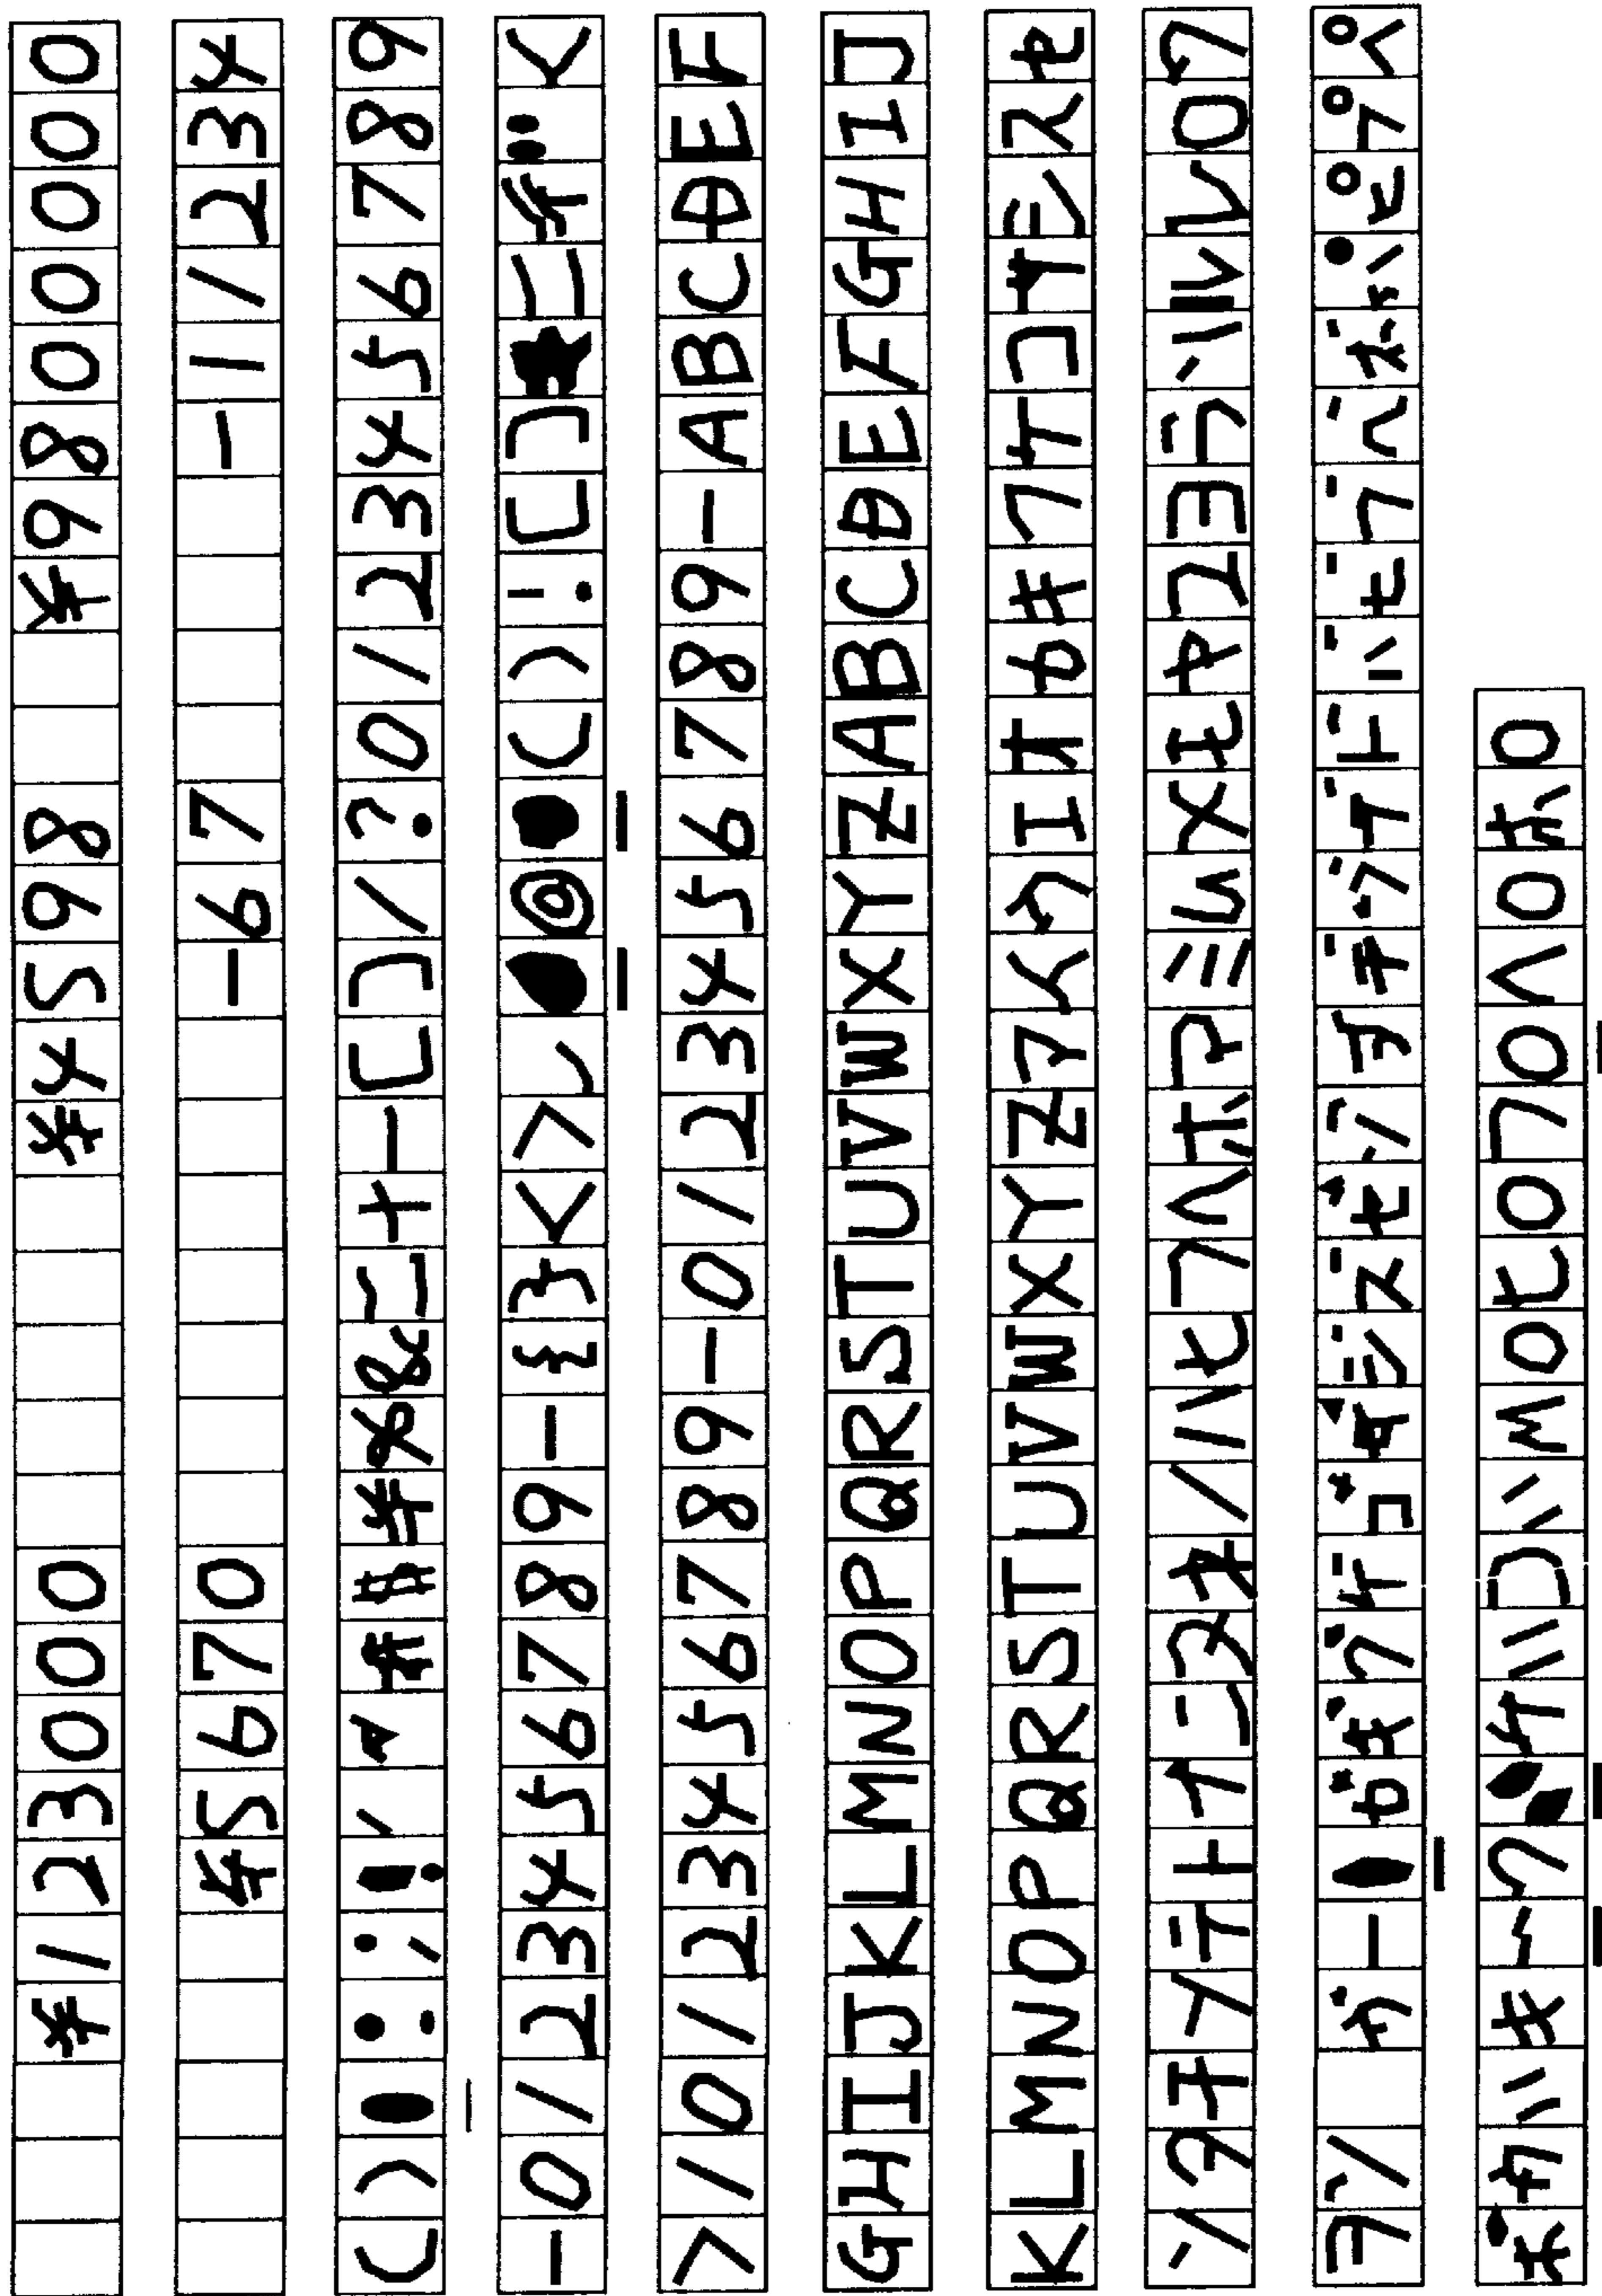 ¥123000 ¥4598 ¥9800000
¥5670 -67 -1/234
():;!,'#$¥%&=+-[]/?0123456789
-0123456789-{}<>、@()÷[]★=:<
>/0123456789-0123456789-ABCDEF
GHIJKLMNOPQRSTUVWXYZABCDEFGHIJ
KLMNOPQRSTUVWXYZアイウエオカキクケコサシスセ
ソタチツテトナニヌネノハヒフヘホマミムメモヤユヨラリルレロワ
ヲン ヴーガギグゲゴザジズゼゾダヂヅデドバビブベボパピプペ
ポカハキクケハコハM0ヒ0フ0ヘ0ホ0